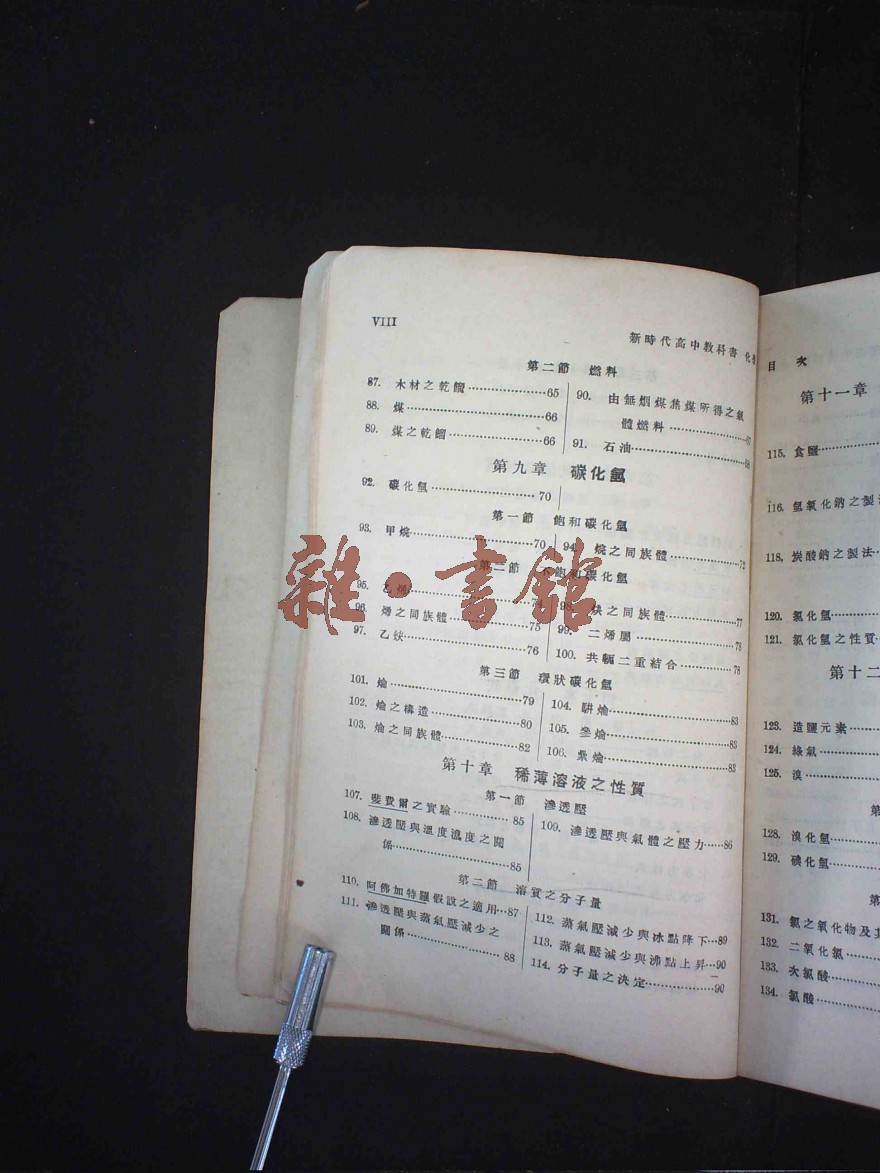 VIII
新時代高中教科書 化
第二節 燃料
87. 木材之乾餾…………65
88. 煤…………66
89. 煤之乾餾…………66
90. 由無烟煤焦煤所得之氣
體燃料…………
91. 石油…………
第九章 碳化氫
92. 碳化氫…………70
第一節 飽和碳化氫
93. 甲烷…………70
94. 烷之同族體…………72
第二節 不飽和碳化氫
95. 乙烯…………74
96. 烯之同族體…………75
97. 乙炔…………76
98. 炔之同族體…………77
99. 二烯屬…………78
100. 共軛二重結合…………78
第三節 環狀碳化氫
101. 𤆬…………79
102. 之構造…………80
103. 之同族體…………82
104. 駢…………83
105. …………83
106. …………83
第十章 稀薄溶液之性質
第一節 滲透壓
107. 斐費爾之實驗…………85
108. 滲透壓與溫度濃度之關
係…………85
109. 滲透壓與氣體之壓力……86
第二節 溶質之分子量
110. 阿佛加特羅假設之適用…87
111. 滲透壓與蒸氣壓減少之
關係…………88
112. 蒸氣壓減少與冰點降下…89
113. 蒸氣壓減少與沸點上昇…90
114. 分子量之決定…………90
目 次
第十一章
115. 食鹽…………
116. 氫氧化鈉之製
118. 炭酸鈉之製法
120. 氯化氫…………
121. 氯化氫之性質
第十二
123. 造鹽元素…………
124. 綠氣…………
125. 溴…………
第
128. 溴化氫…………
129. 碘化氫…………
第
131. 氯之氧化物及其
132. 二氧化氯…………
133. 次氯酸…………
134. 氯酸…………
雜·書館